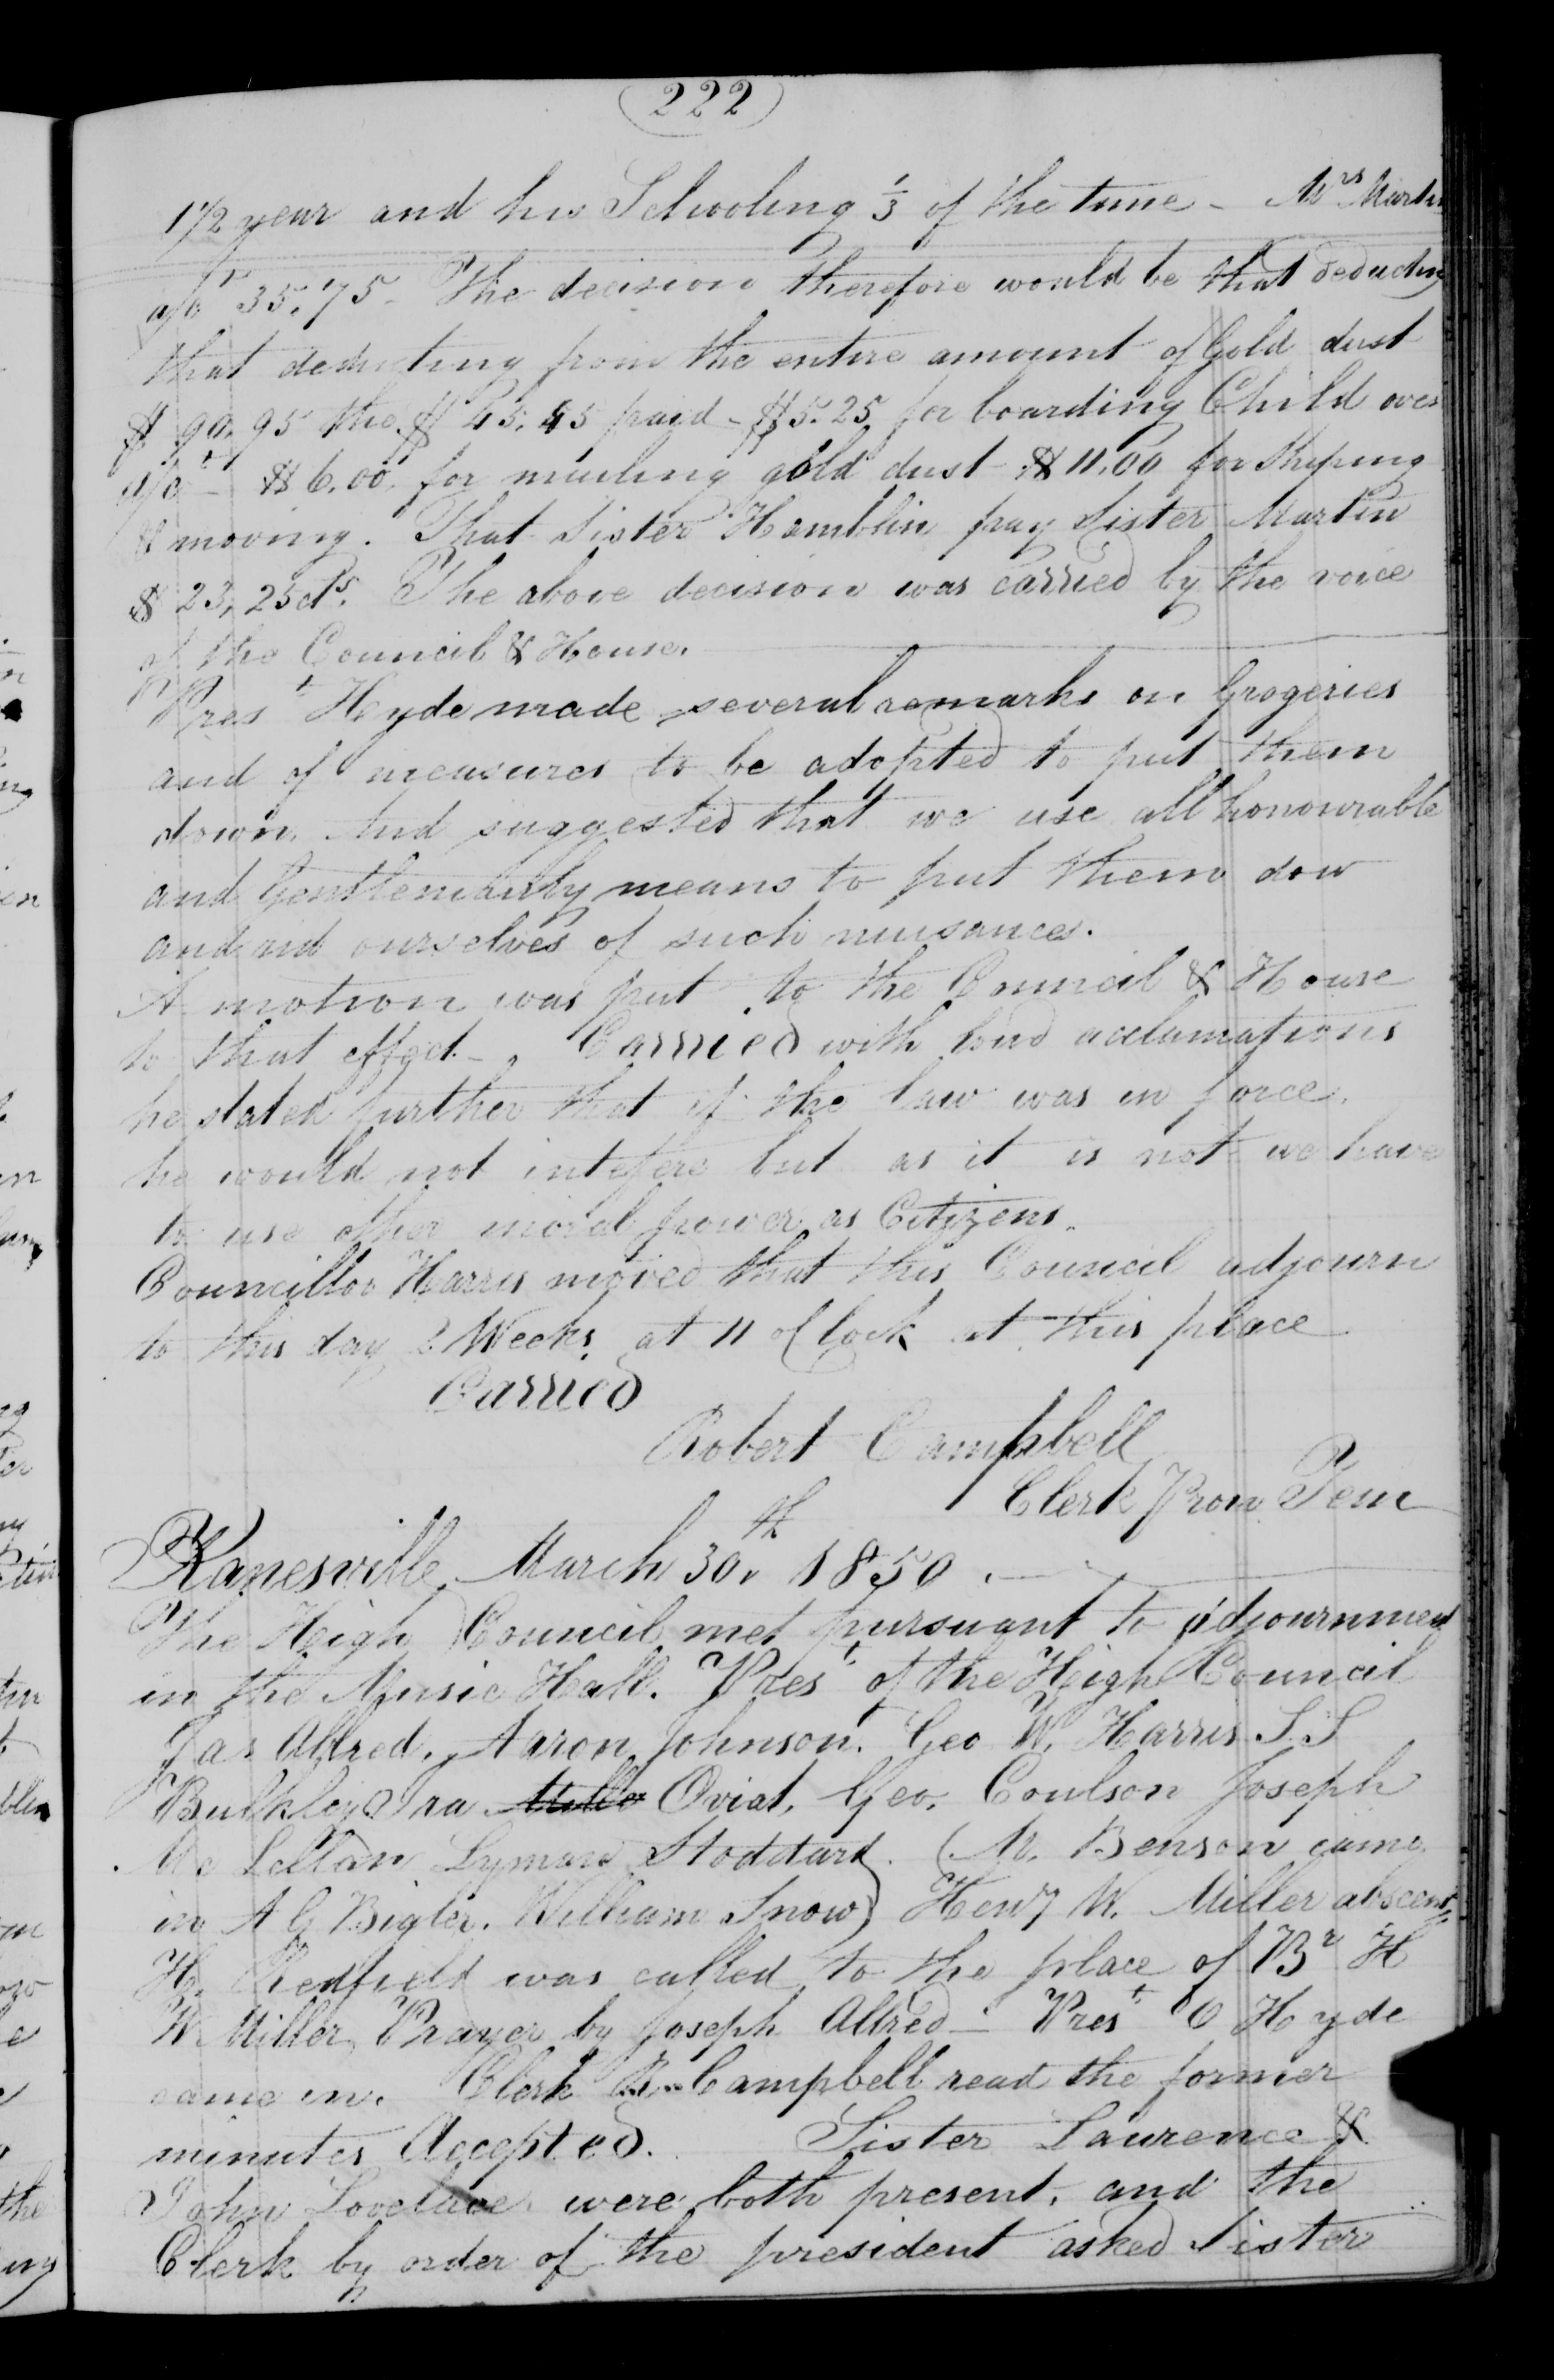 222
1 1/2 year and his Schooling 1/3 of the time - Mrs Martin
a/c 35.75 - The decision therefore would be that deducting
that deducting from the entire amount of Gold dust
$ 90.95 the $ 45.45 paid - $5.25 for boarding Child over
a/c - $6.00 for muling gold dust - $11.00 for Shiping
& moving. That Sister Hamblin pay Sister Martin
$ 23,25cts. The above decision was carried by the voice
of the Council & House.
Prest Hyde made several remarks on Grogeries
and of measures to be adopted to put them
down. And suggested that we use all honourable
and Gentlemanly means to put them dow
and rid ourselves of such nuisances.
A motion was put to the Council & House
to that effect -, Carried with loud acclamations
he stated further that if the law was in force,
he would not intefere but as it is not we have
to use other moral power as Citizens.
Councillor Harris moved that this Council adjourn
to this day 2 Weeks, at 11 oClock at this place
Carried
Robert Campbell
Clerk Prom Tem
Kanesville March 30th 1850.
The High Council met pursuant to adjournment
in the Music Hall. Prest of the High Council
Jas Allred, Aaron Johnson. Geo W. Harris S.S
Bulkley Ira Miller Oviat, Geo. Coulson Joseph
Mc Lellan Lyman Stoddard. (M. Benson came
in A G Bigler. William Snow) Henry W. Miller abscent,
H. Redfield was called to the place of Br H
W Miller Prayer by Joseph Allred - Prest O Hyde
came in. Clerk R. Campbell read the former
minutes Accepted. Sister Laurence &
John Lovelace were both present, and the
Clerk by order of the president asked Sister